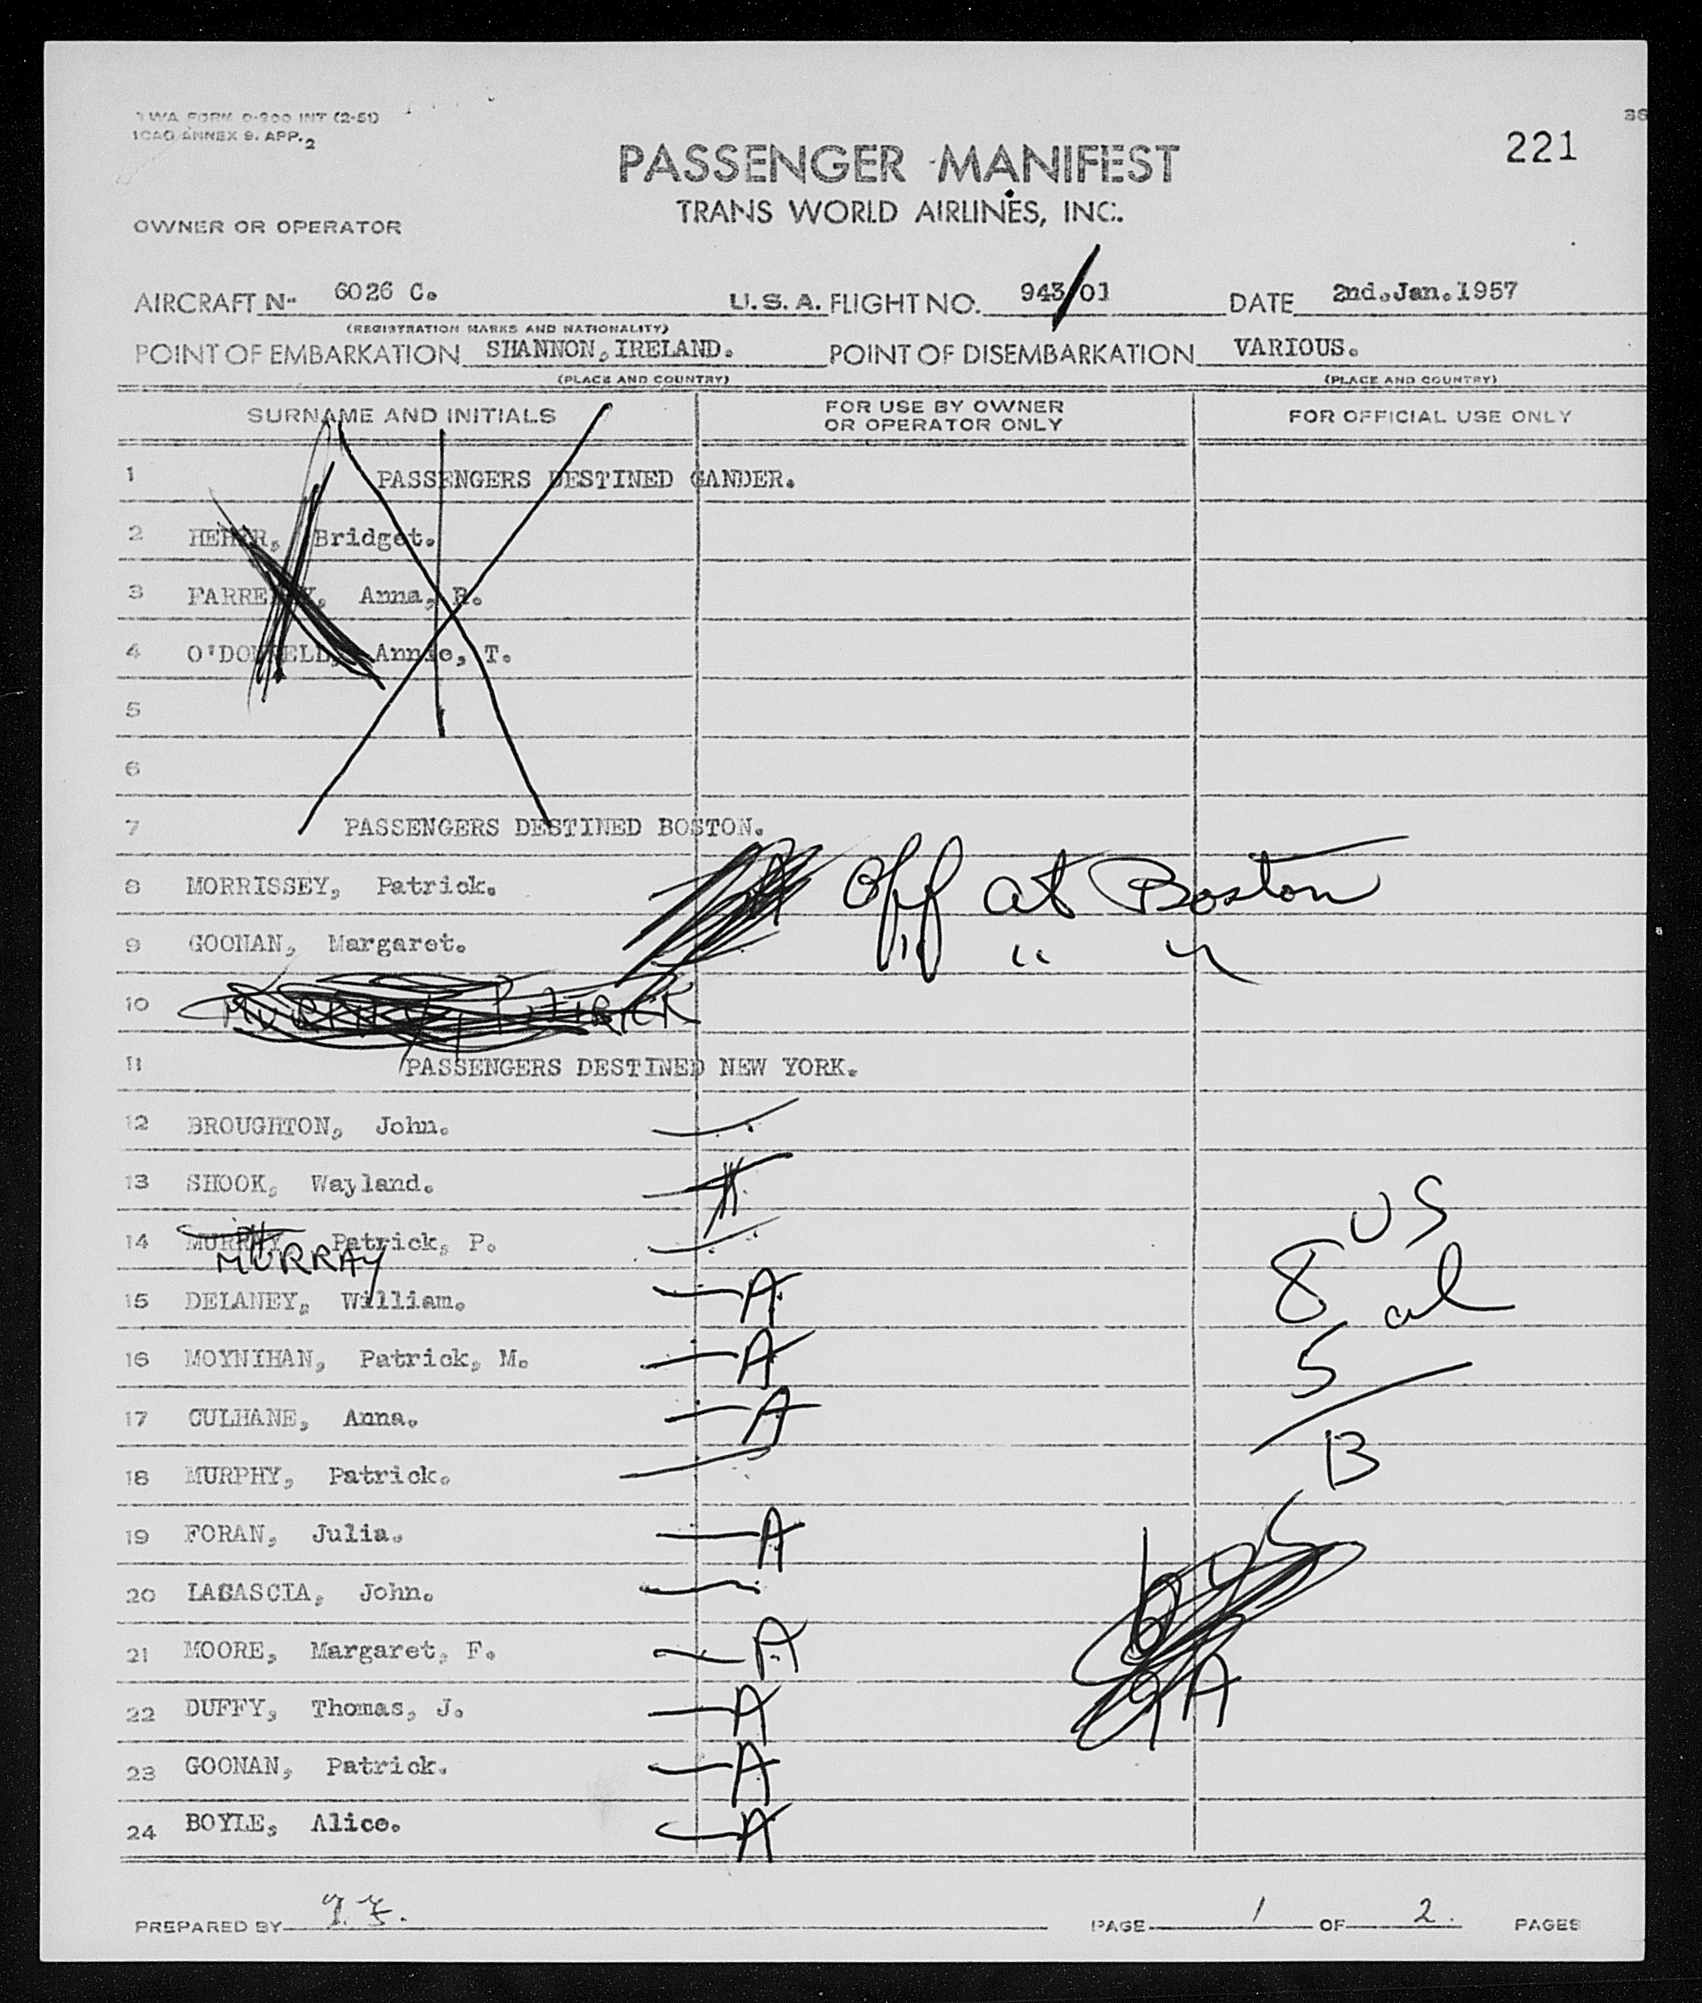 TWA FORM O-200 INT (2-51)
ICAO ANNEX 9. APP. 2
221
PASSENGER MANIFEST
TRANS WORLD AIRLINES, INC.
OWNER OR OPERATOR
AIRCRAFT Nº 6026 C. U.S.A. FLIGHT NO. 943/01 DATE 2nd.Jan.1957
(REGISTRATION MARKS AND NATIONALITY)
POINT OF EMBARKATION SHANNON, IRELAND. POINT OF DISEMBARKATION VARIOUS.
(PLACE AND COUNTRY) (PLACE AND COUNTRY)
SURNAME AND INITIALS FOR USE BY OWNER OR OPERATOR ONLY FOR OFFICIAL USE ONLY
1 PASSENGERS DESTINED GANDER.
2 Bridget.
3 FARRELLY, Anna, R.
4 O'DONNELL, Annie, T.
5
6
7 PASSENGERS DESTINED BOSTON.
8 MORRISSEY, Patrick. Off at Boston
9 GOONAN, Margaret. " " "
10 MURPHY, PATRICK
11 PASSENGERS DESTINED NEW YORK.
12 BROUGHTON, John.
13 SHOOK, Wayland.
14 MURRAY Patrick, P.
MURRAY
US
8 al
15 DELANEY, William. A
16 MOYNIHAN, Patrick, M. A
5
17 CULHANE, Anna. A
13
18 MURPHY, Patrick.
19 FORAN, Julia. A
20 LAGASCIA, John.
6 US
21 MOORE, Margaret, F. A
9 A
22 DUFFY, Thomas, J. A
23 GOONAN, Patrick. A
24 BOYLE, Alice. A
PREPARED BY PAGE 1 OF 2. PAGES